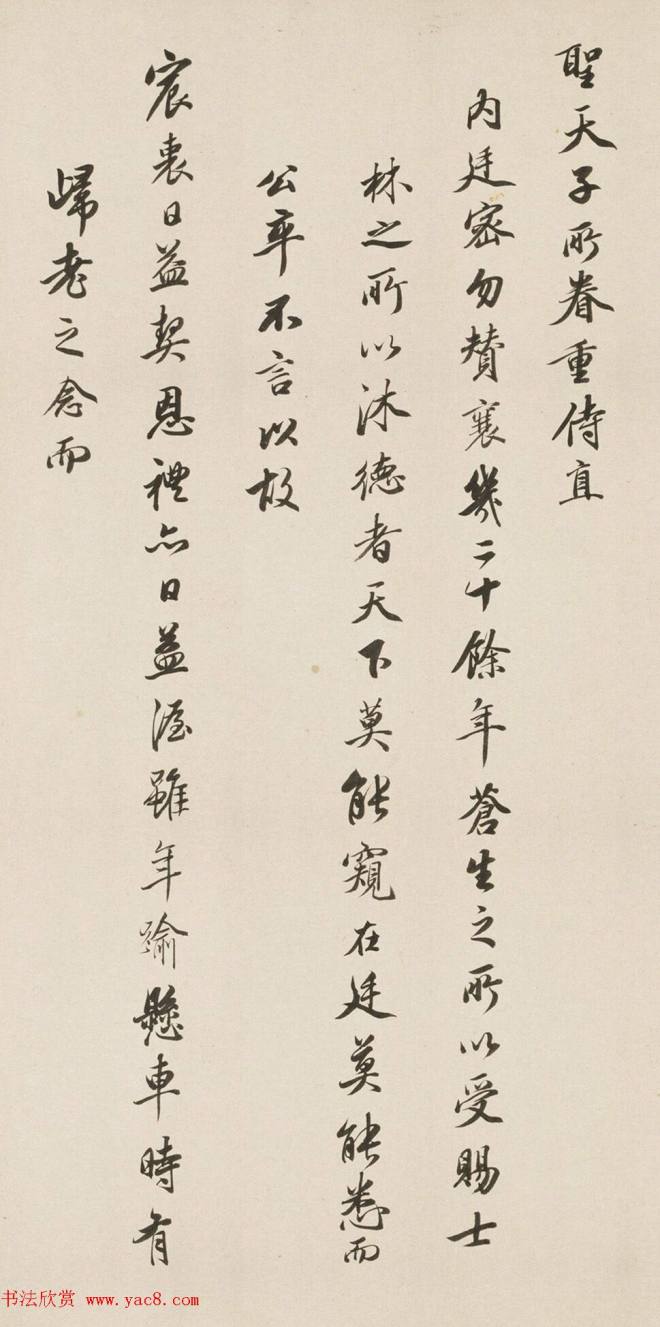 聖天子所眷重侍直
內廷密勿贊襄幾二十餘年蒼生之所以受賜士
林之所以沐德者天下莫能窺在廷莫能悉而
公卒不言以故
宸衷日益契恩禮亦日益渥雖年踰懸車時有
歸老之念而
书法欣赏 www.yac8.com